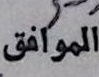 الموافق